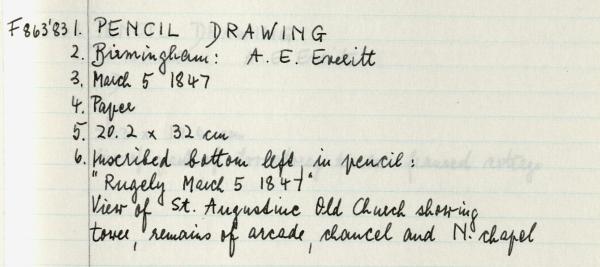 F863'83 1. PENCIL DRAWING
2. Birmingham: A. E. Everitt
3. March 5 1847
4. Paper
5. 20.2 x 32 cm
6. Inscribed bottom left, in pencil:
"Rugely March 5 1847"
View of St. Augustine Old Church showing
tower, remains of arcade, chancel and N. chapel